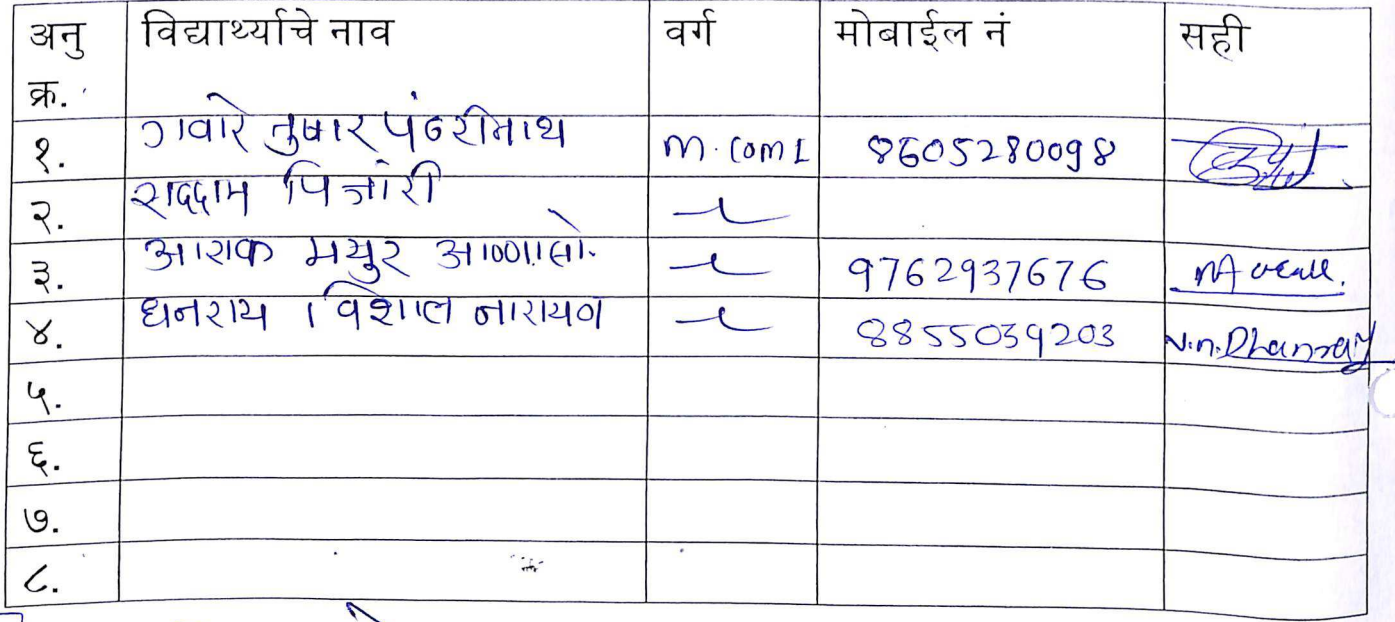 अनु क्र. विद्यार्थ्याचे नाव वर्ग मोबाईल नं सही
१. गवारे तुषार पंढरीनाथ M.Com I 8605280098
२. सद्दाम पिंजारी
३. आराक मयुर आण्णासो. 9762937676
४. धनराय विशाल नारायण 8855039203 V.n.Dhanray
५.
६.
७.
८.